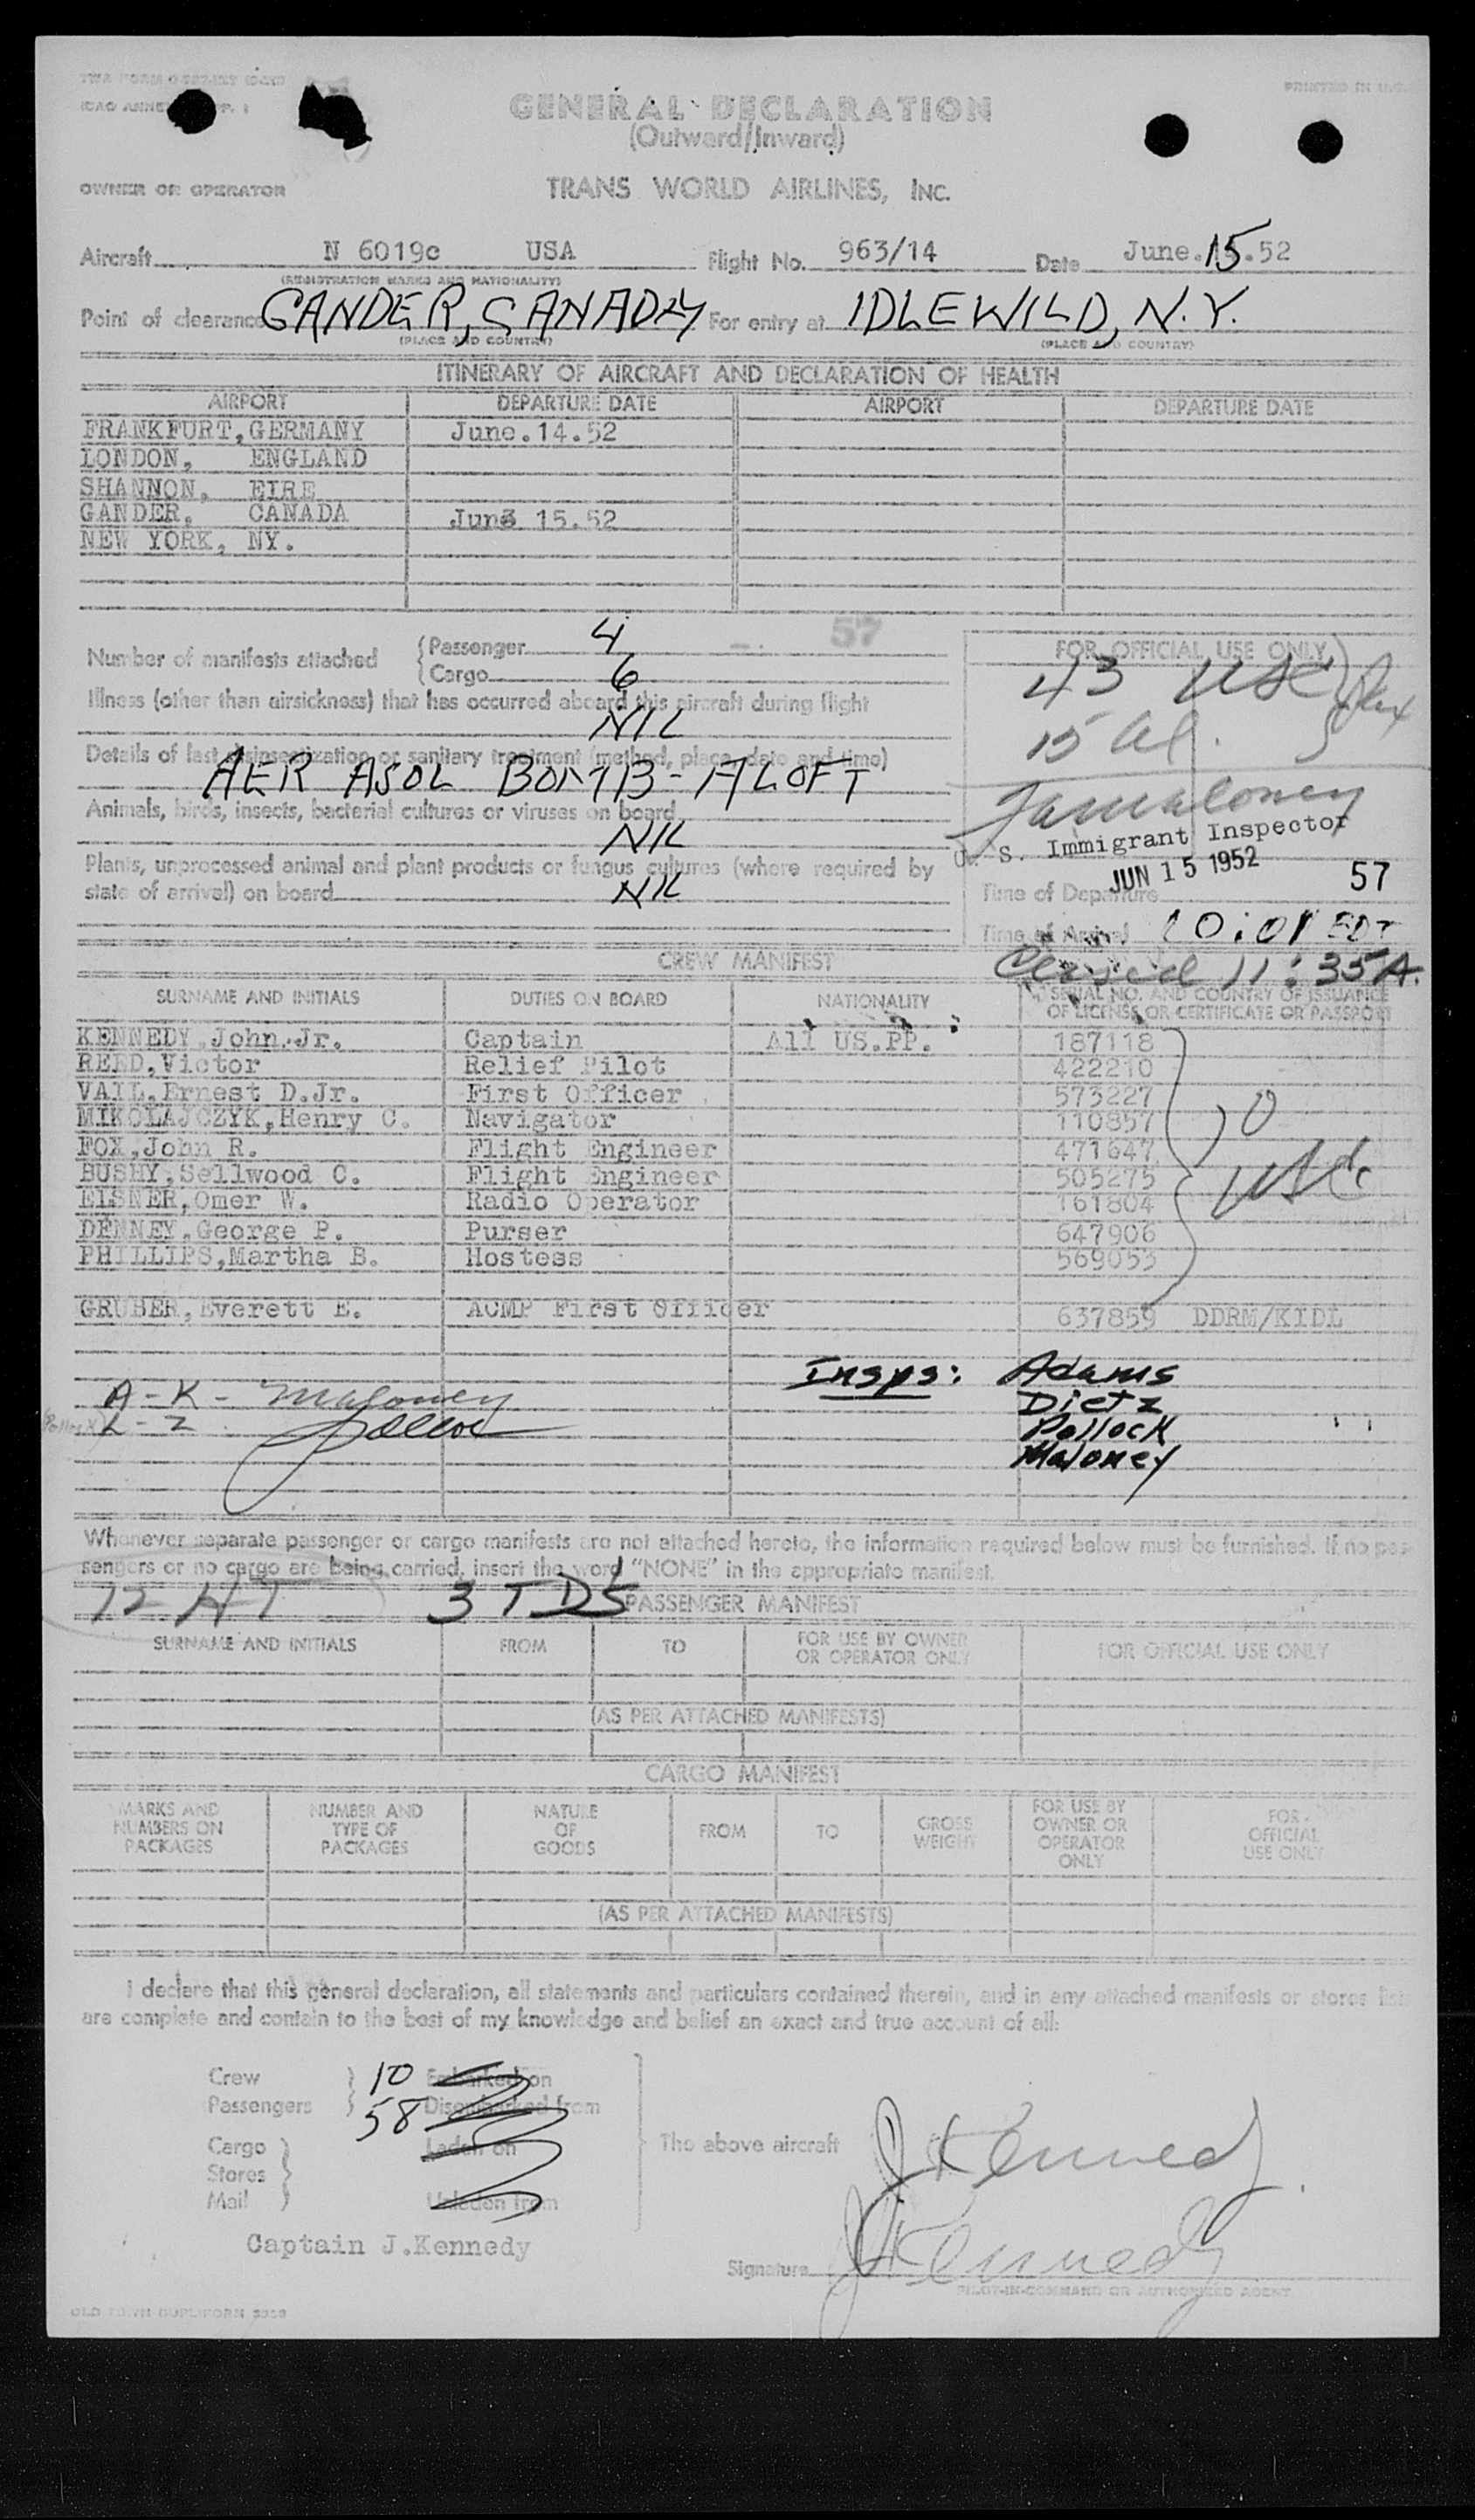 PRINTED IN U.S.
GENERAL DECLARATION
(Outward/Inward)
OWNER OR OPERATOR TRANS WORLD AIRLINES, INC.
Aircraft N 6019c USA Flight No. 963/14 Date June.15.52
(REGISTRATION MARKS AND NATIONALITY)
Point of clearance GANDER, CANADA For entry at IDLEWILD, N.Y.
(PLACE AND COUNTRY) (PLACE AND COUNTRY)
ITINERARY OF AIRCRAFT AND DECLARATION OF HEALTH
AIRPORT DEPARTURE DATE AIRPORT DEPARTURE DATE
FRANKFURT, GERMANY June.14.52
LONDON, ENGLAND
SHANNON, EIRE
GANDER, CANADA June 15.52
NEW YORK, NY.
57
Number of manifests attached Passenger 4
Cargo 6
FOR OFFICIAL USE ONLY
43 USC
15 Al.
Illness (other than airsickness) that has occurred aboard this aircraft during flight
NIL
Details of last disinsectization or sanitary treatment (method, place, date and time)
AER ASOL BOMB - ALOFT
Animals, birds, insects, bacterial cultures or viruses on board
NIL
Plants, unprocessed animal and plant products or fungus cultures (where required by
state of arrival) on board NIL
Jamaloney
U. S. Immigrant Inspector
JUN 15 1952
Time of Departure 57
Time of Arrival 10:01 EDT
11:35 A.
CREW MANIFEST
SURNAME AND INITIALS DUTIES ON BOARD NATIONALITY SERIAL NO. AND COUNTRY OF ISSUANCE
OF LICENSE OR CERTIFICATE OR PASSPORT
KENNEDY, John.Jr. Captain All US.PP. 187118
REED,Victor Relief Pilot 422210
VAIL,Ernest D.Jr. First Officer 573227
MIKOLAJCZYK,Henry C. Navigator 110857
FOX,John R. Flight Engineer 471647
BUSHY,Sellwood C. Flight Engineer 505275
EISNER,Omer W. Radio Operator 161804
DENNEY,George P. Purser 647906
PHILLIPS,Martha B. Hostess 569053
10
USC
GRUBER,Everett E. ACMP First Officer 637859 DDRM/KIDL
Insps: Adams
Dietz
Pollock
Maloney
A - K - Maloney
L - Z
Whenever separate passenger or cargo manifests are not attached hereto, the information required below must be furnished. If no pas-
sengers or no cargo are being carried, insert the word "NONE" in the appropriate manifest.
12 HT 3 TDS
PASSENGER MANIFEST
SURNAME AND INITIALS FROM TO FOR USE BY OWNER OR OPERATOR ONLY FOR OFFICIAL USE ONLY
(AS PER ATTACHED MANIFESTS)
CARGO MANIFEST
MARKS AND NUMBERS ON PACKAGES NUMBER AND TYPE OF PACKAGES NATURE OF GOODS FROM TO GROSS WEIGHT FOR USE BY OWNER OR OPERATOR ONLY FOR OFFICIAL USE ONLY
(AS PER ATTACHED MANIFESTS)
I declare that this general declaration, all statements and particulars contained therein, and in any attached manifests or stores lists
are complete and contain to the best of my knowledge and belief an exact and true account of all:
Crew 10 Embarked on
Passengers 58 Disembarked from
Cargo Laden on
Stores
Mail Unladen from
The above aircraft J Kennedy
Captain J.Kennedy
Signature J Kennedy
PILOT-IN-COMMAND OR AUTHORIZED AGENT